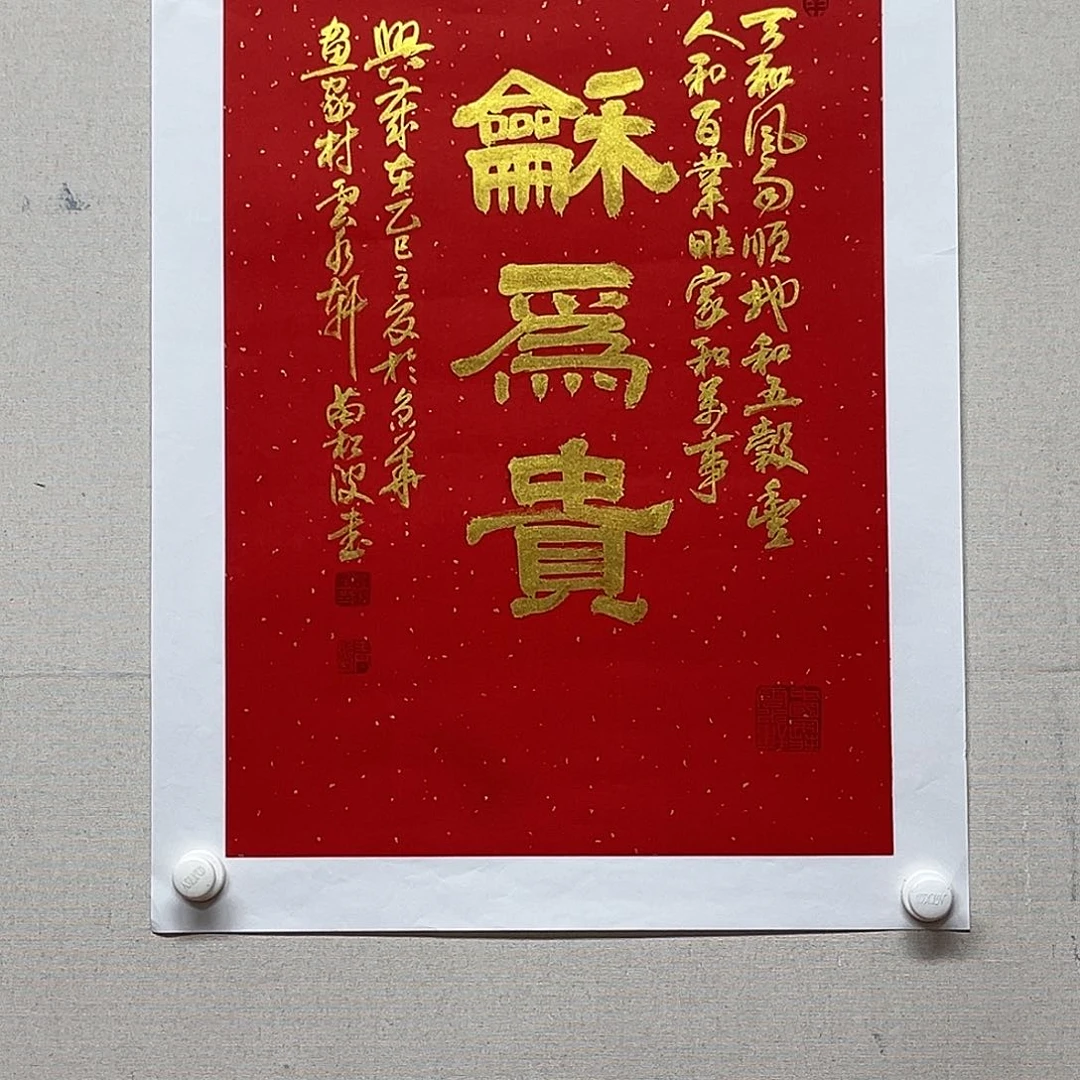 天和風雨順地和五穀豐
人和百業旺家和萬事
龢爲貴
興歲在乙巳之夏於京華
畫家村雲水軒書